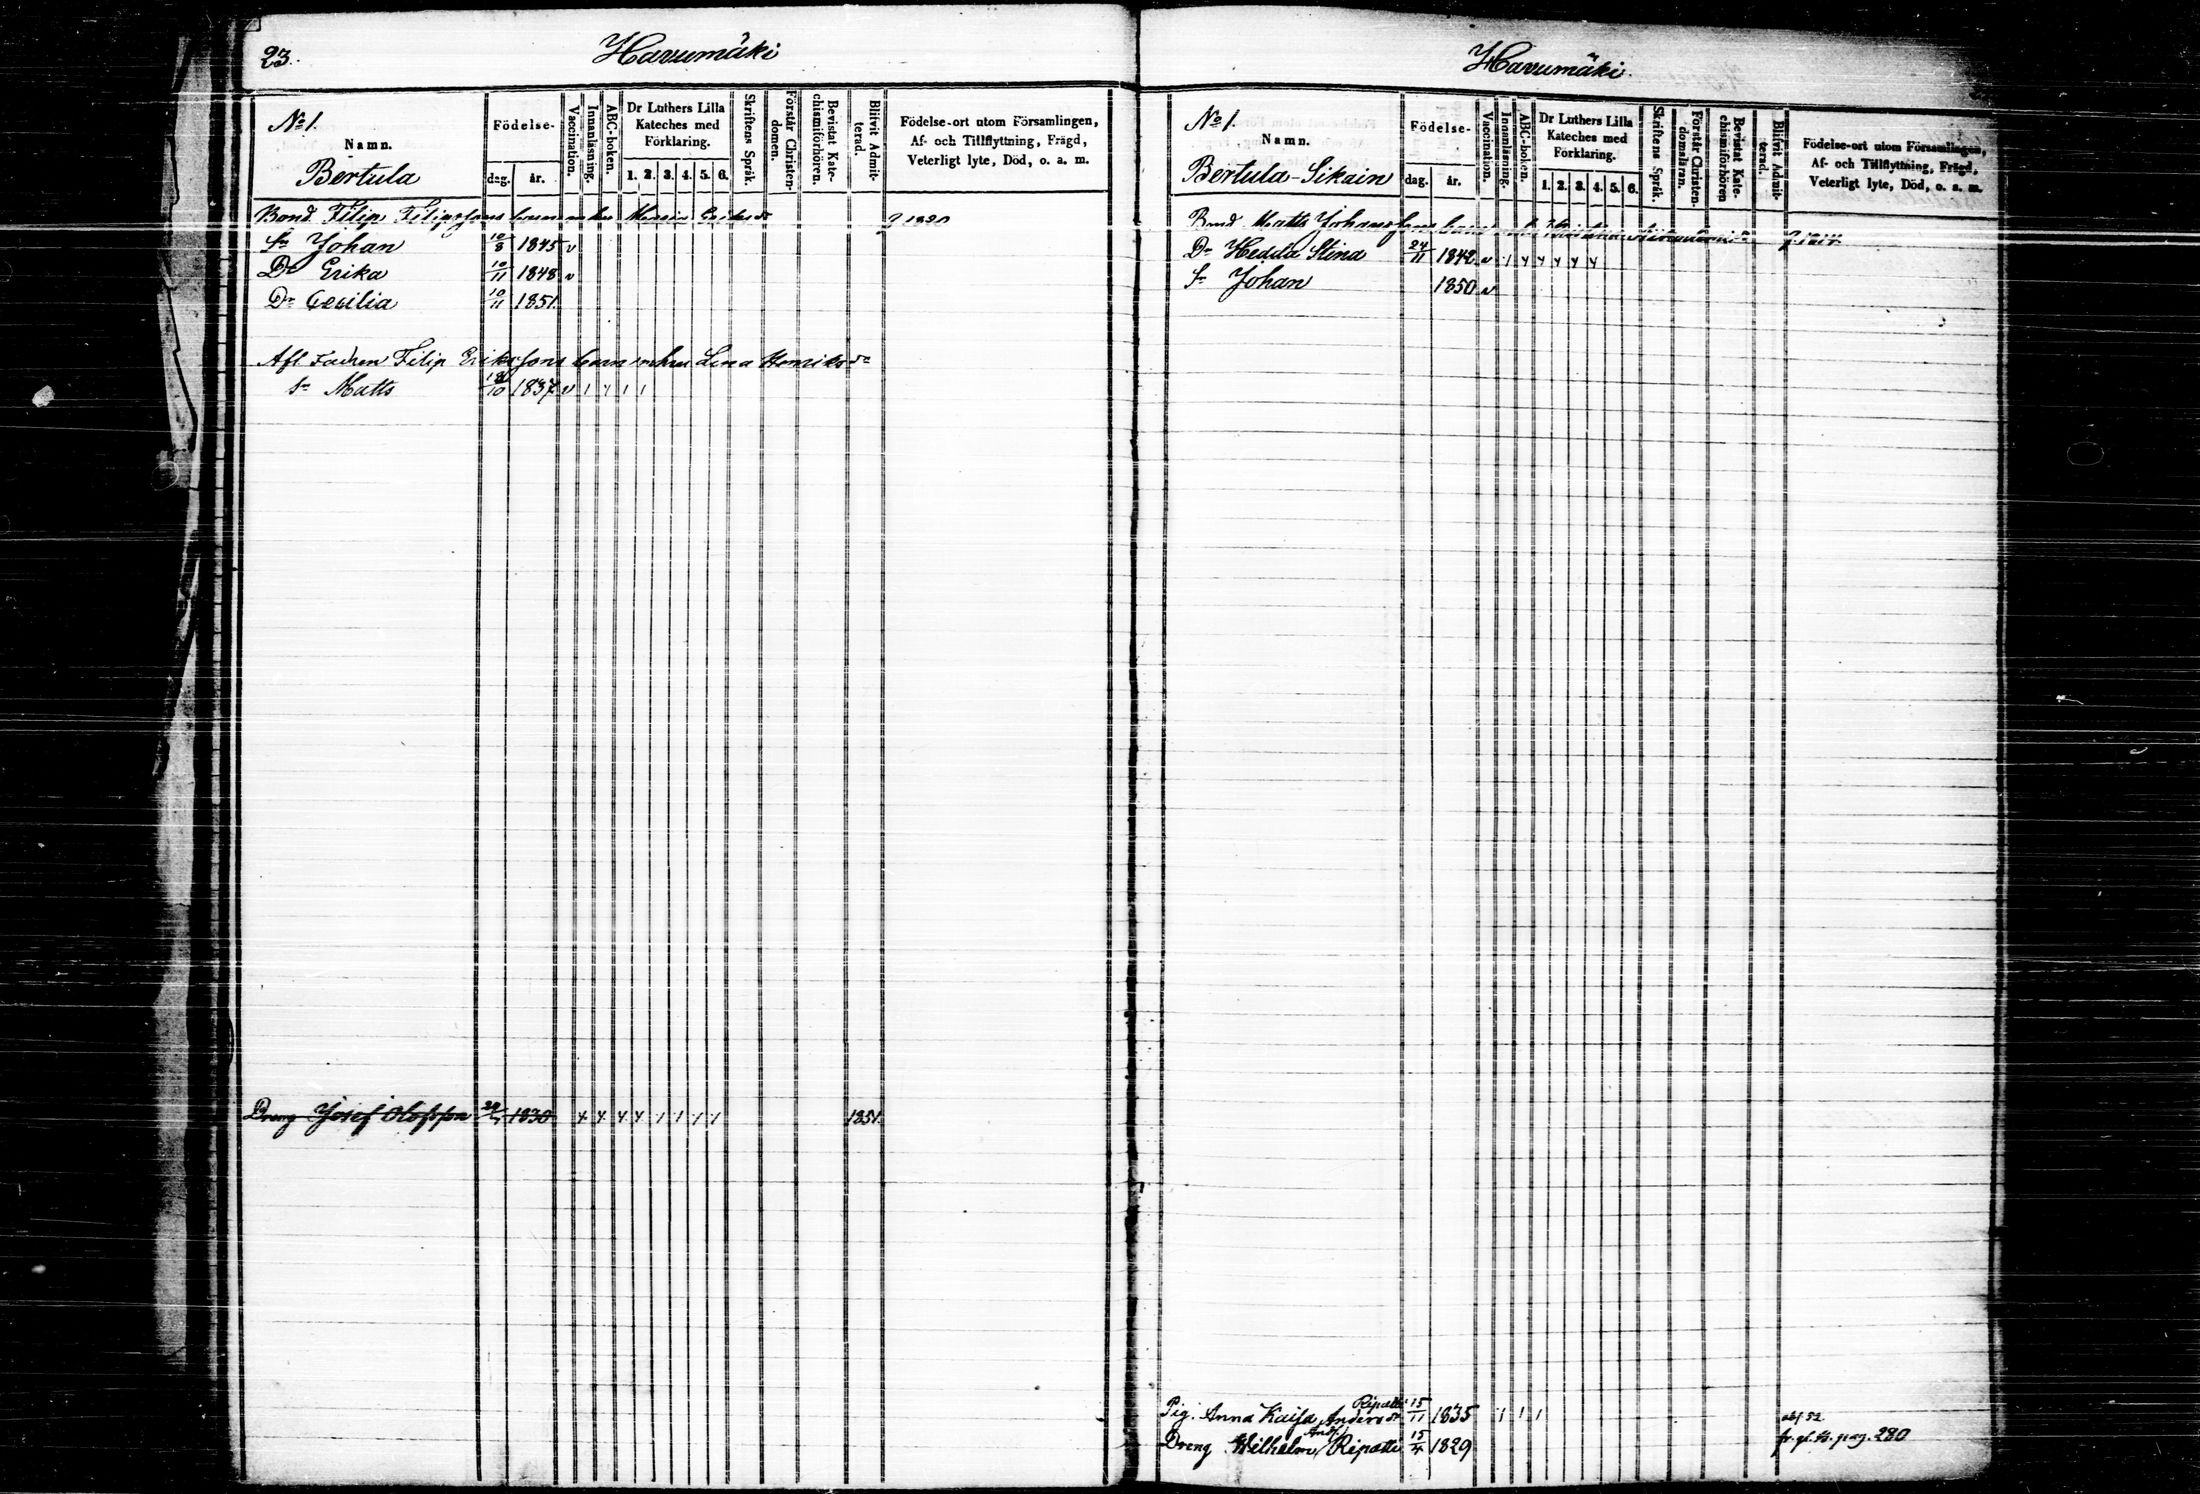 23.
Havumäki
No 1.
Namn.
Bertula
Födelse-
dag. år.
Vaccination.
Innanläsning.
ABC-boken.
Dr Luthers Lilla
Kateches med
Förklaring.
1. 2. 3. 4. 5. 6.
Skriftens Språk.
Förstår Christen-
domen.
Bevistat Kate-
chismiförhören.
Blifvit Admit-
terad.
Födelse-ort utom Församlingen,
Af- och Tillflyttning, Frägd,
Veterligt lyte, Död, o. a. m.
Bond. Filip Filipsfons barn Maria
Sn Johan 10/8 1845 v
Dr Erika 10/11 1848 v
Dr Cecilia 10/11 1851.
Afl Fadren Filip Eriksfons barn m hru Lena Henriksdr
Sn Matts 18/10 1837 v
Dreng Josef Olofsson 1830 1851.
Havumäki.
No 1.
Namn.
Bertula-Sikain
Födelse-
dag. år.
Vaccination.
Innanläsning.
ABC-boken.
Dr Luthers Lilla
Kateches med
Förklaring.
1. 2. 3. 4. 5. 6.
Skriftens Språk.
Förstår Christen-
domsläran.
Bevistat Kate-
chismiförhören
Blifvit Admit-
terad.
Födelse-ort utom Församlingen,
Af- och Tillflyttning, Frägd,
Veterligt lyte, Död, o. a. m.
Bond Matts Johansfons barn
Dr Hedda Stina 24/11 1842 v
Sn Johan 1850 v
Ripatti
Pig. Anna Kaisa Andersdr 15/11 1835
And.
Dreng Wilhelm Ripatti 15/4 1829 fr. gl. b. pag. 280